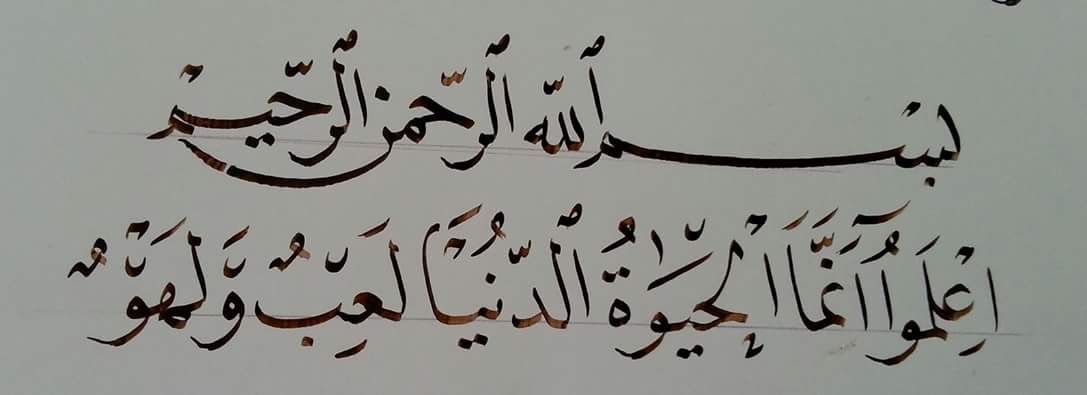 بسم ٱللّه ٱلرّحمن ٱلرّحيمْ
اِعْلَمُوٓا اَنَّمَا الْحَيٰوةُ ٱلدُّنْيَا لَعِبٌ وَّلَهْوٌ